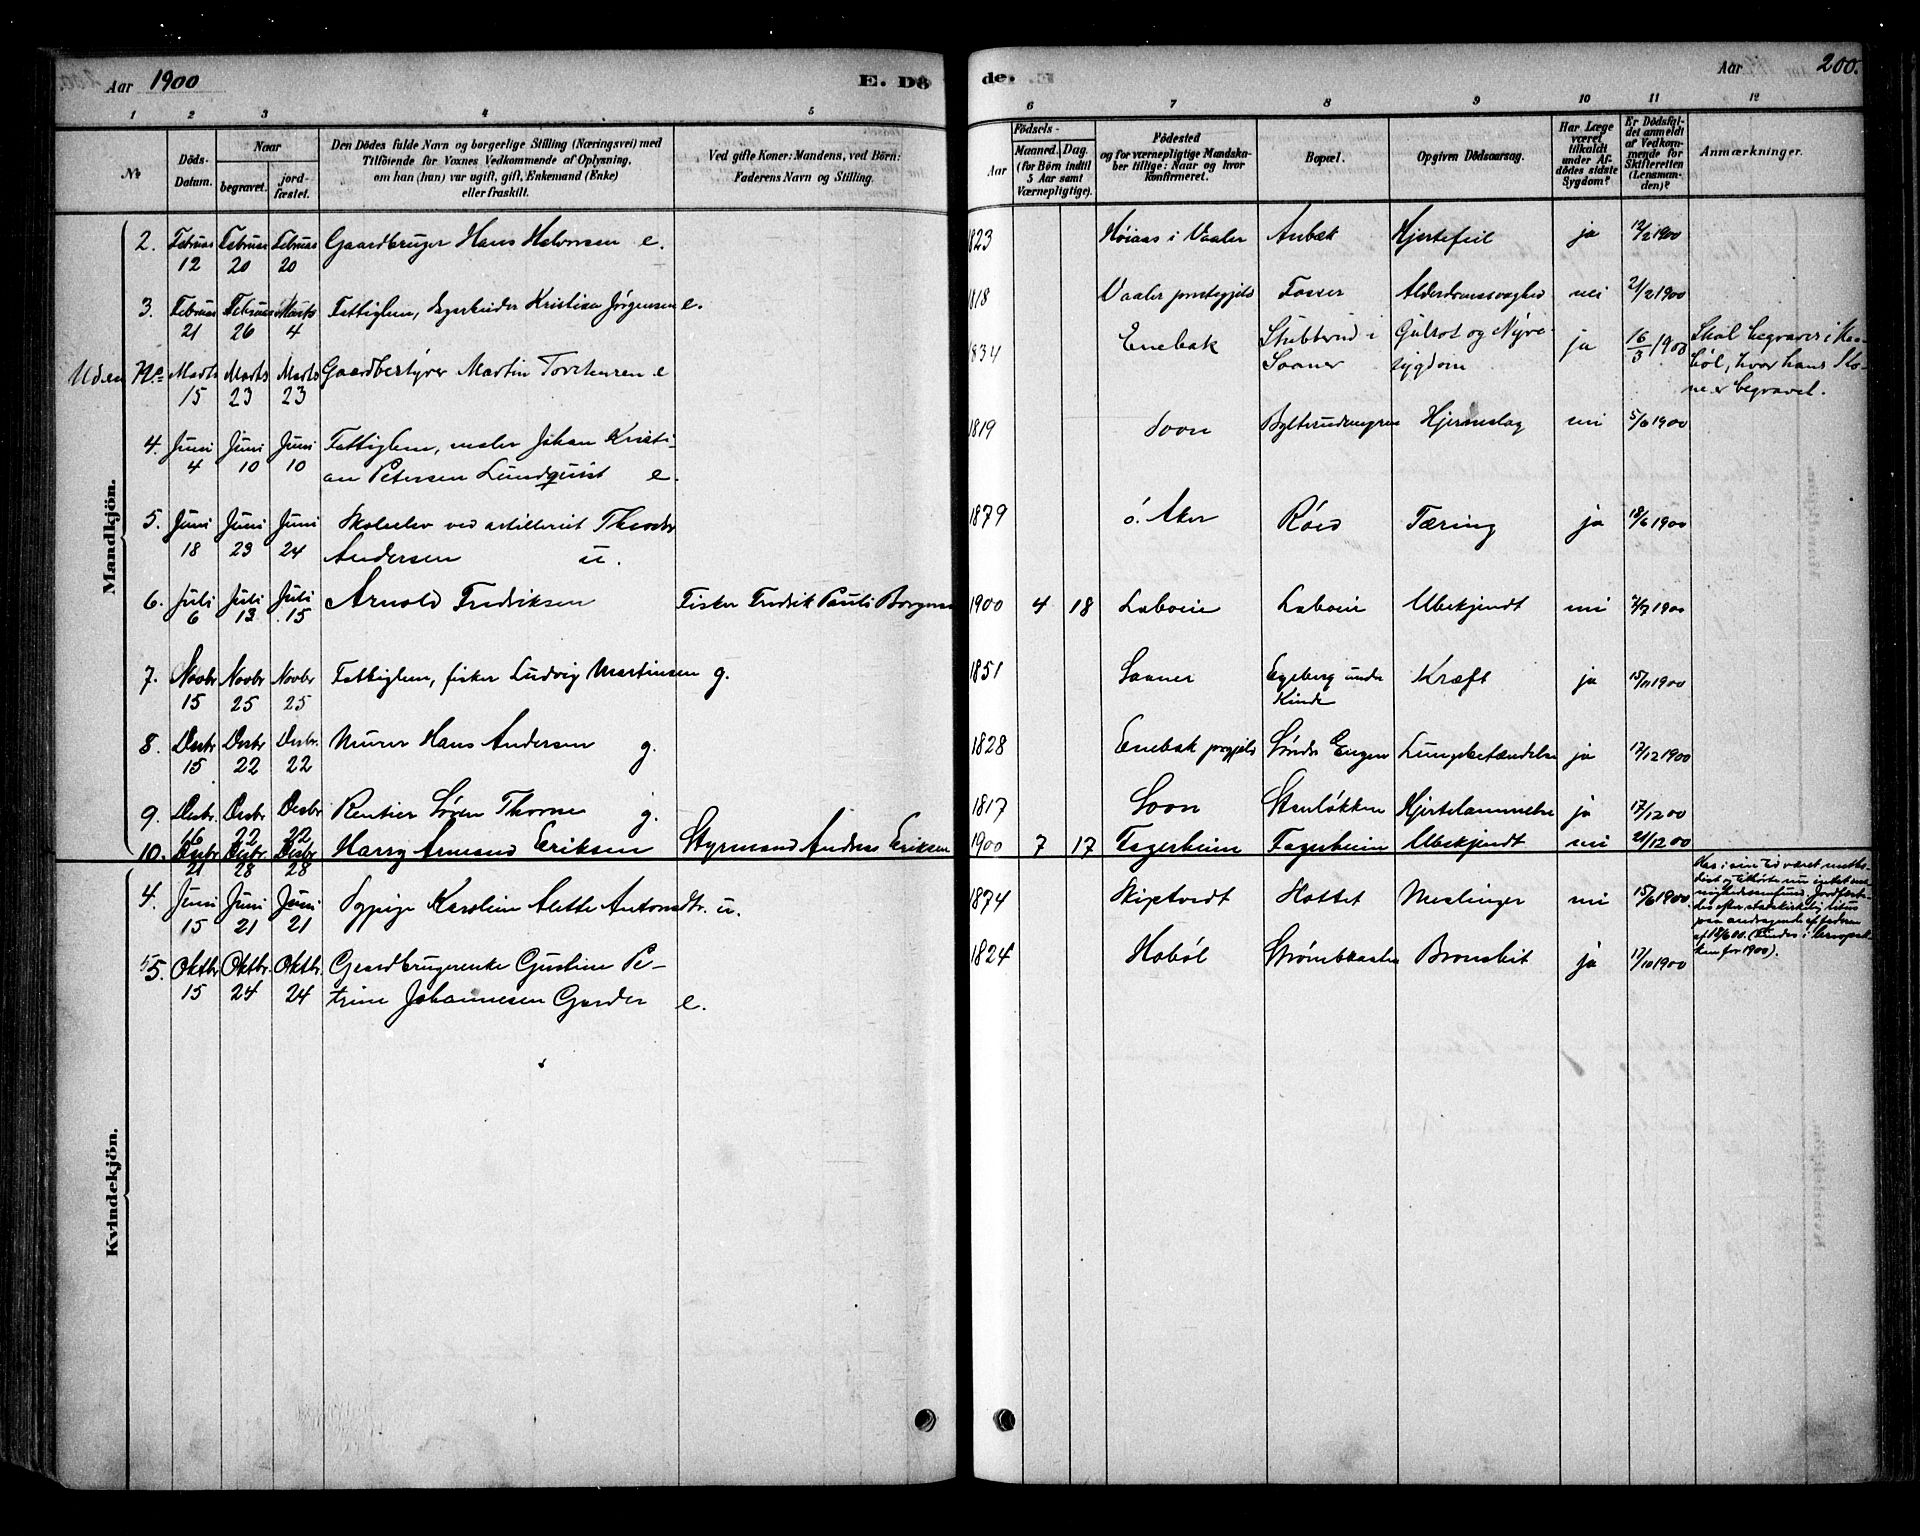 Aar 1900
E. Dö
de.
Aar
200.
1 2 3 4 5
6 7 8 9 10 11 12
No
Döds-Datum.
Naar
begravet.
jord-fæstet.
Den Dödes fulde Navn og borgerlige Stilling (Næringsvei) med
Tilföiende for Voxnes Vedkommende af Oplysning,
om han (hun) var ugift, gift, Enkemand (Enke)
eller fraskilt.
Ved gifte Koner: Mandens, ved Börn:
Faderens Navn og Stilling.
Födsels-
Aar
Maaned. Dag.
(for Börn indtil
5 Aar samt
Værnepligtige).
Födested
og for værnepligtige Mandska-
ber tillige: Naar og hvor
konfirmeret.
Bopæl.
Opgiven Dödsaarsag.
Har Læge
været
tilkaldt
under Af-
dödes sidste
Sygdom?
Er Dödsfal-
det anmeldt
af Vedkom-
mende for
Skifteretten
(Lensman-
den)?
Anmærkninger.
Mandkjön.
2. Februar 12 Februar 20 Februar 20 Gaardbruger Hans Halvorsen e. 1823 Høiaas i Vaaler Anbæk Hjertefeil ja 12/2 1900
3. Februar 21 Februar 26 Marts 4 Fattiglem, Kristian Jørgensen e. 1818 Vaaler prestegjeld Fosser Alderdomssvaghed nei 21/2 1900
Uden No Marts 15 Marts 23 Marts 23 Gaardbestyrer Martin e 1834 Enebak Stubberud i Saaner Gulsot og Nyre-sygdom ja 16/3 1900 Skal begraves i Haa-
bøl, hvor hans Ko-
ne er begravet.
4. Juni 4 Juni 10 Juni 10 Fattiglem, maler Johan Kristi-
an Petersen Lundquist e. 1819 Soon Hjerneslag nei 5/6 1900
5. Juni 18 Juni 23 Juni 24 ved artilleriet Theodor
Andersen u. 1879 Ö. Aker Röed Tæring ja 18/6 1900
6. Juli 6 Juli 13 Juli 15 Arnold Fredriksen Fisker Fredrik Pauli Borgersen 1900 4 18 Laboein Laboein Ubekjendt nei 7/7 1900
7. Novbr 15 Novbr 25 Novbr 25 Fattiglem, fisker Ludvig Martinsen g. 1851 Saaner Egeberg under Kinde Kræft ja 15/11 1900
8. Desbr 15 Desbr 22 Desbr. 22 Murer Hans Andersen g. 1828 Enebak prgjeld Søndre Engen Lungebetændelse ja 17/12 1900
9. Desbr. 16 Desbr 22 Desbr 22 Rentier Sören Thorne g. 1817 Soon Stenløkken Hjertelammelse ja 17/12 00
10. Desbr 21 Desbr 28 Desbr 28 Harry Armand Eriksen Styrmand Andreas Eriksen 1900 7 17 Fagerheim Fagerheim Ubekjendt nei 21/12 00
Kvindekjön.
4. Juni 15 Juni 21 Juni 21 Karoline Alette Antonsdtr. u. 1874 Skiptvedt Hottet Meslinger nei 15/6 1900 Har i sin tid været metho-
dist og tilhørte nu intet me-
nighedssamfund. Jordfæste-
des efter statskirkelig ritus
paa andragende af faderen
af 18/6 00.
for 1900).
5. Oktbr 15 Oktbr. 24 Oktbr. 24 Gaardbrugerenke Gustine Pe-
trine Johannesen Garder e. 1824 Hobøl Bronchit ja 17/10 1900